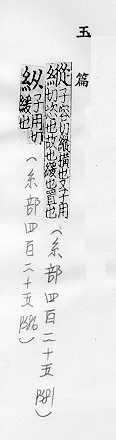 玉篇
縱子容切縱橫也又子用
切恣也放也緩也置也
(糸部四百二十五
纵子用切
緩也
(糸部四百二十五